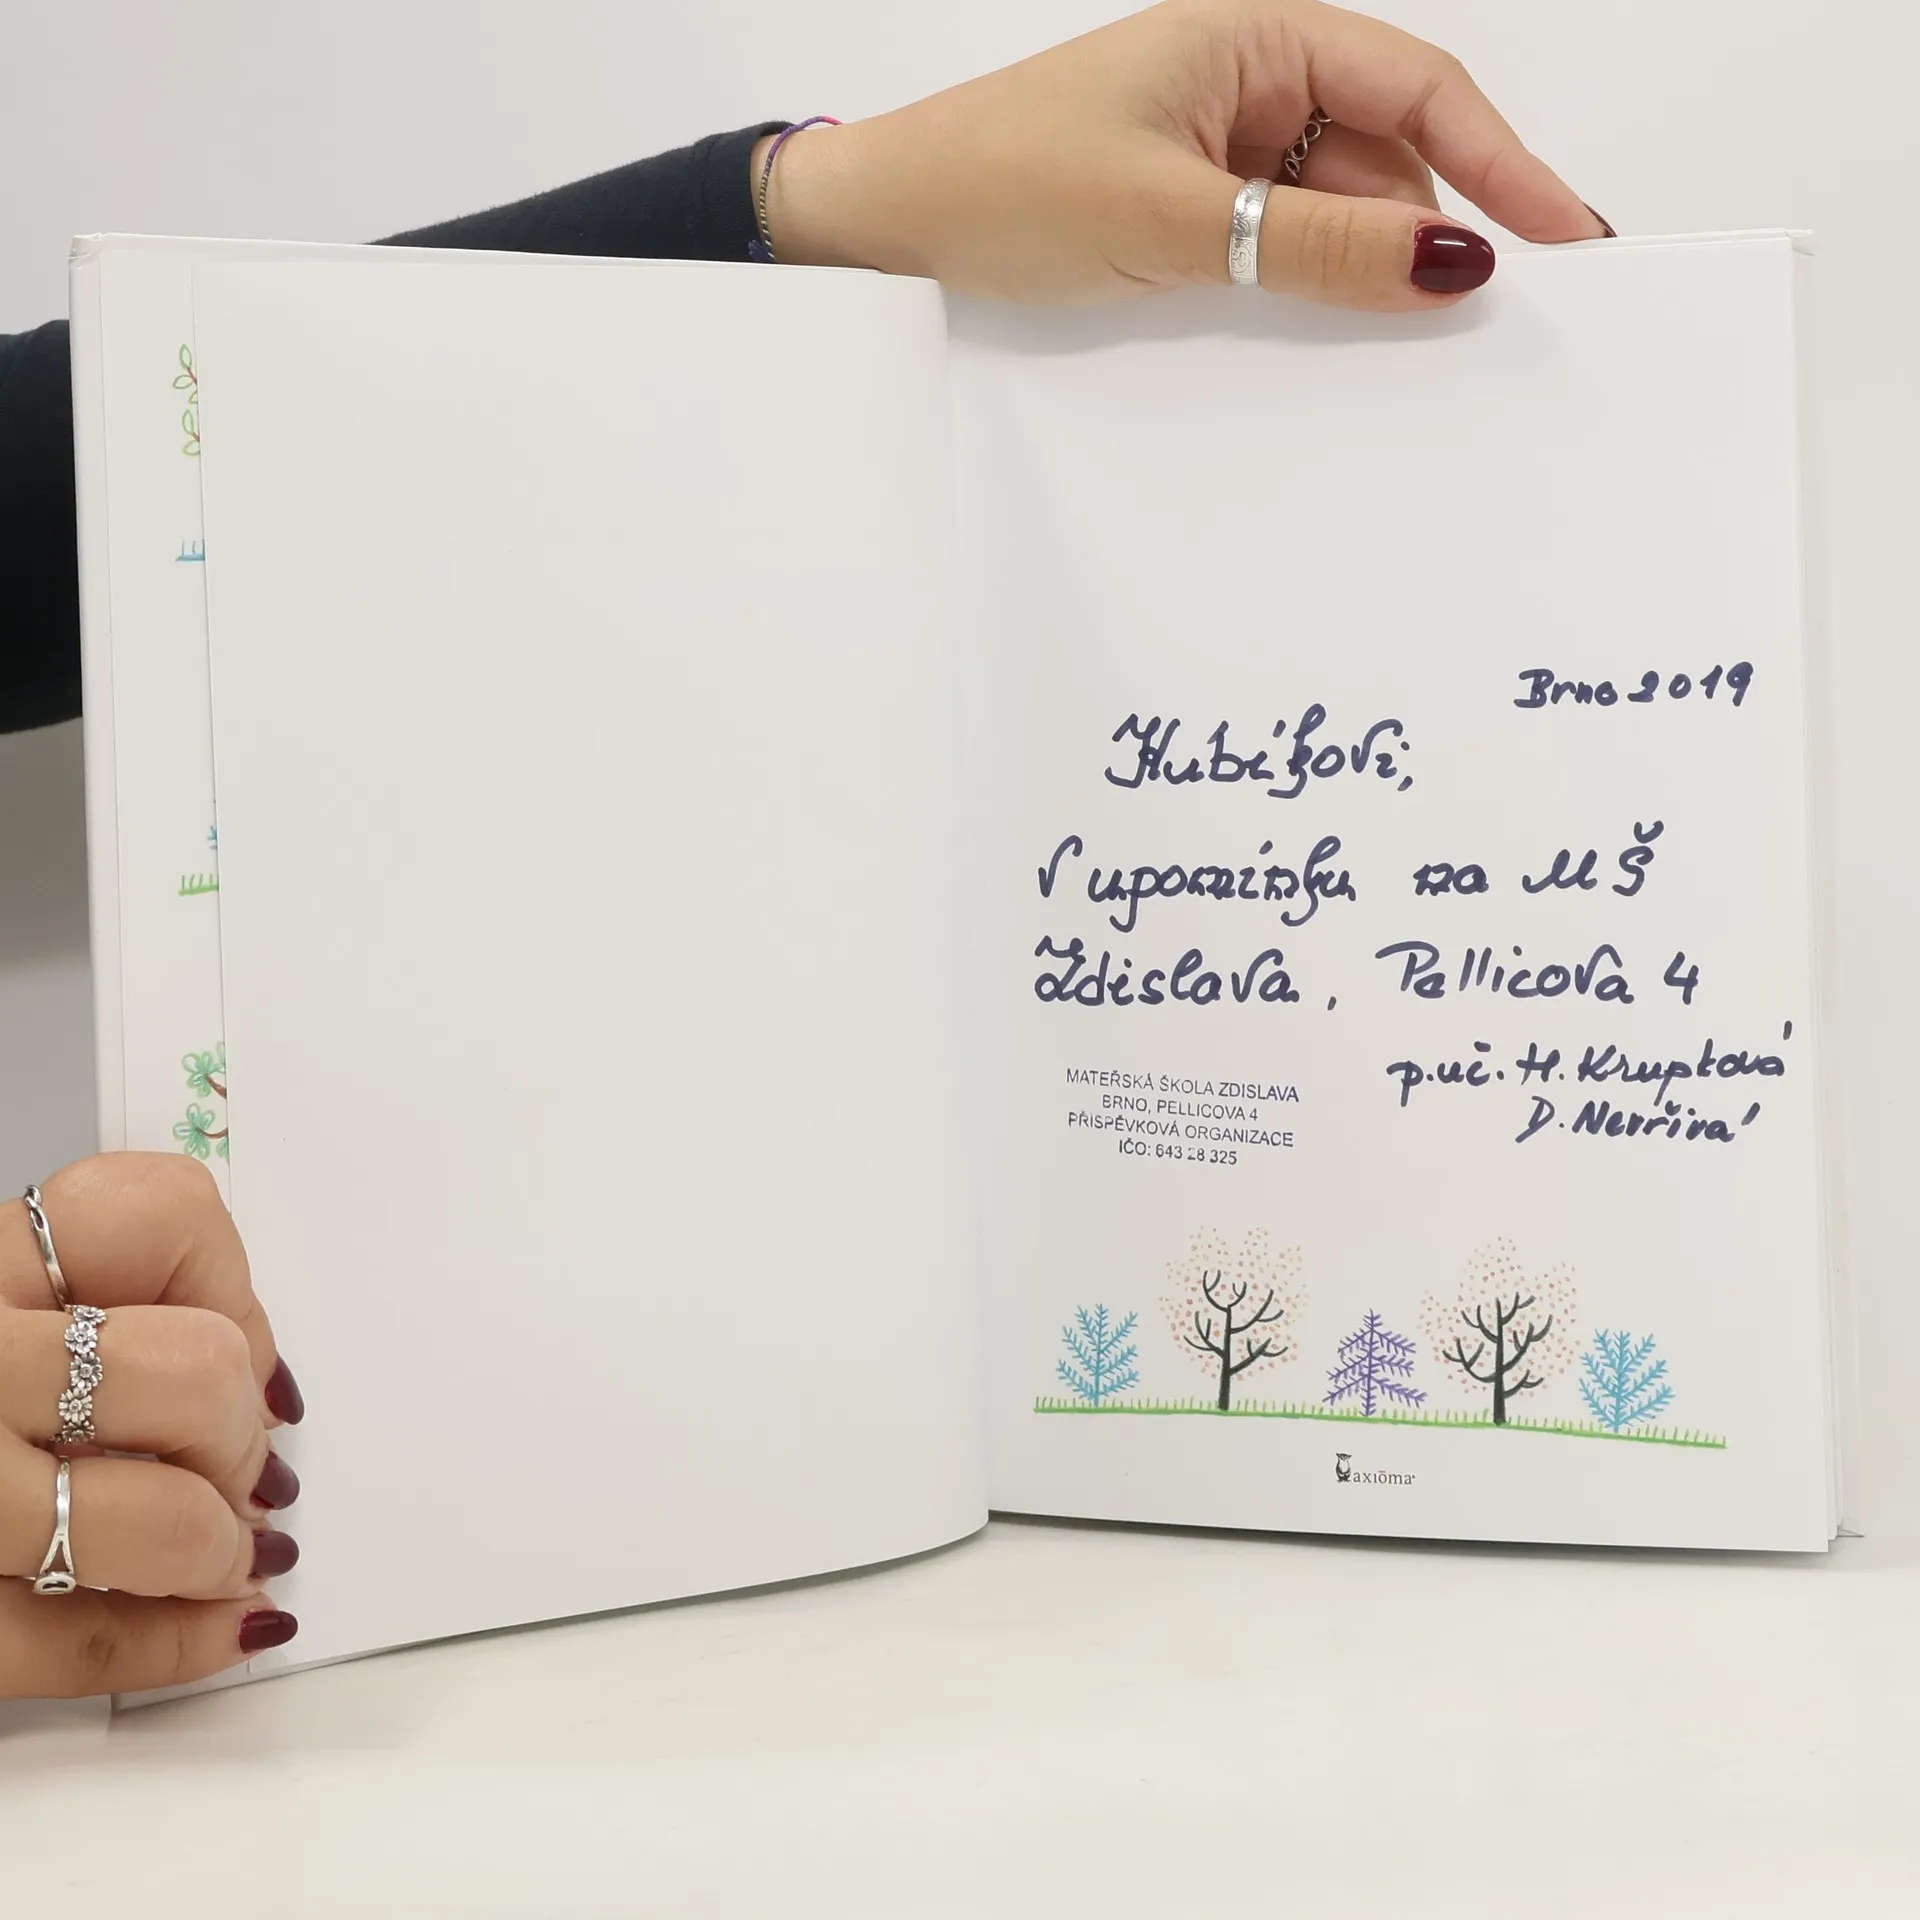 Brno 2019
Hubíkovi,
V upomínku na MŠ
Zdislava, Pellicova 4
p.uč. H. Kruptová
D. Nevřivá
MATEŘSKÁ ŠKOLA ZDISLAVA
BRNO, PELLICOVA 4
PŘISPĚVKOVÁ ORGANIZACE
IČO: 643 28 325
axiōma